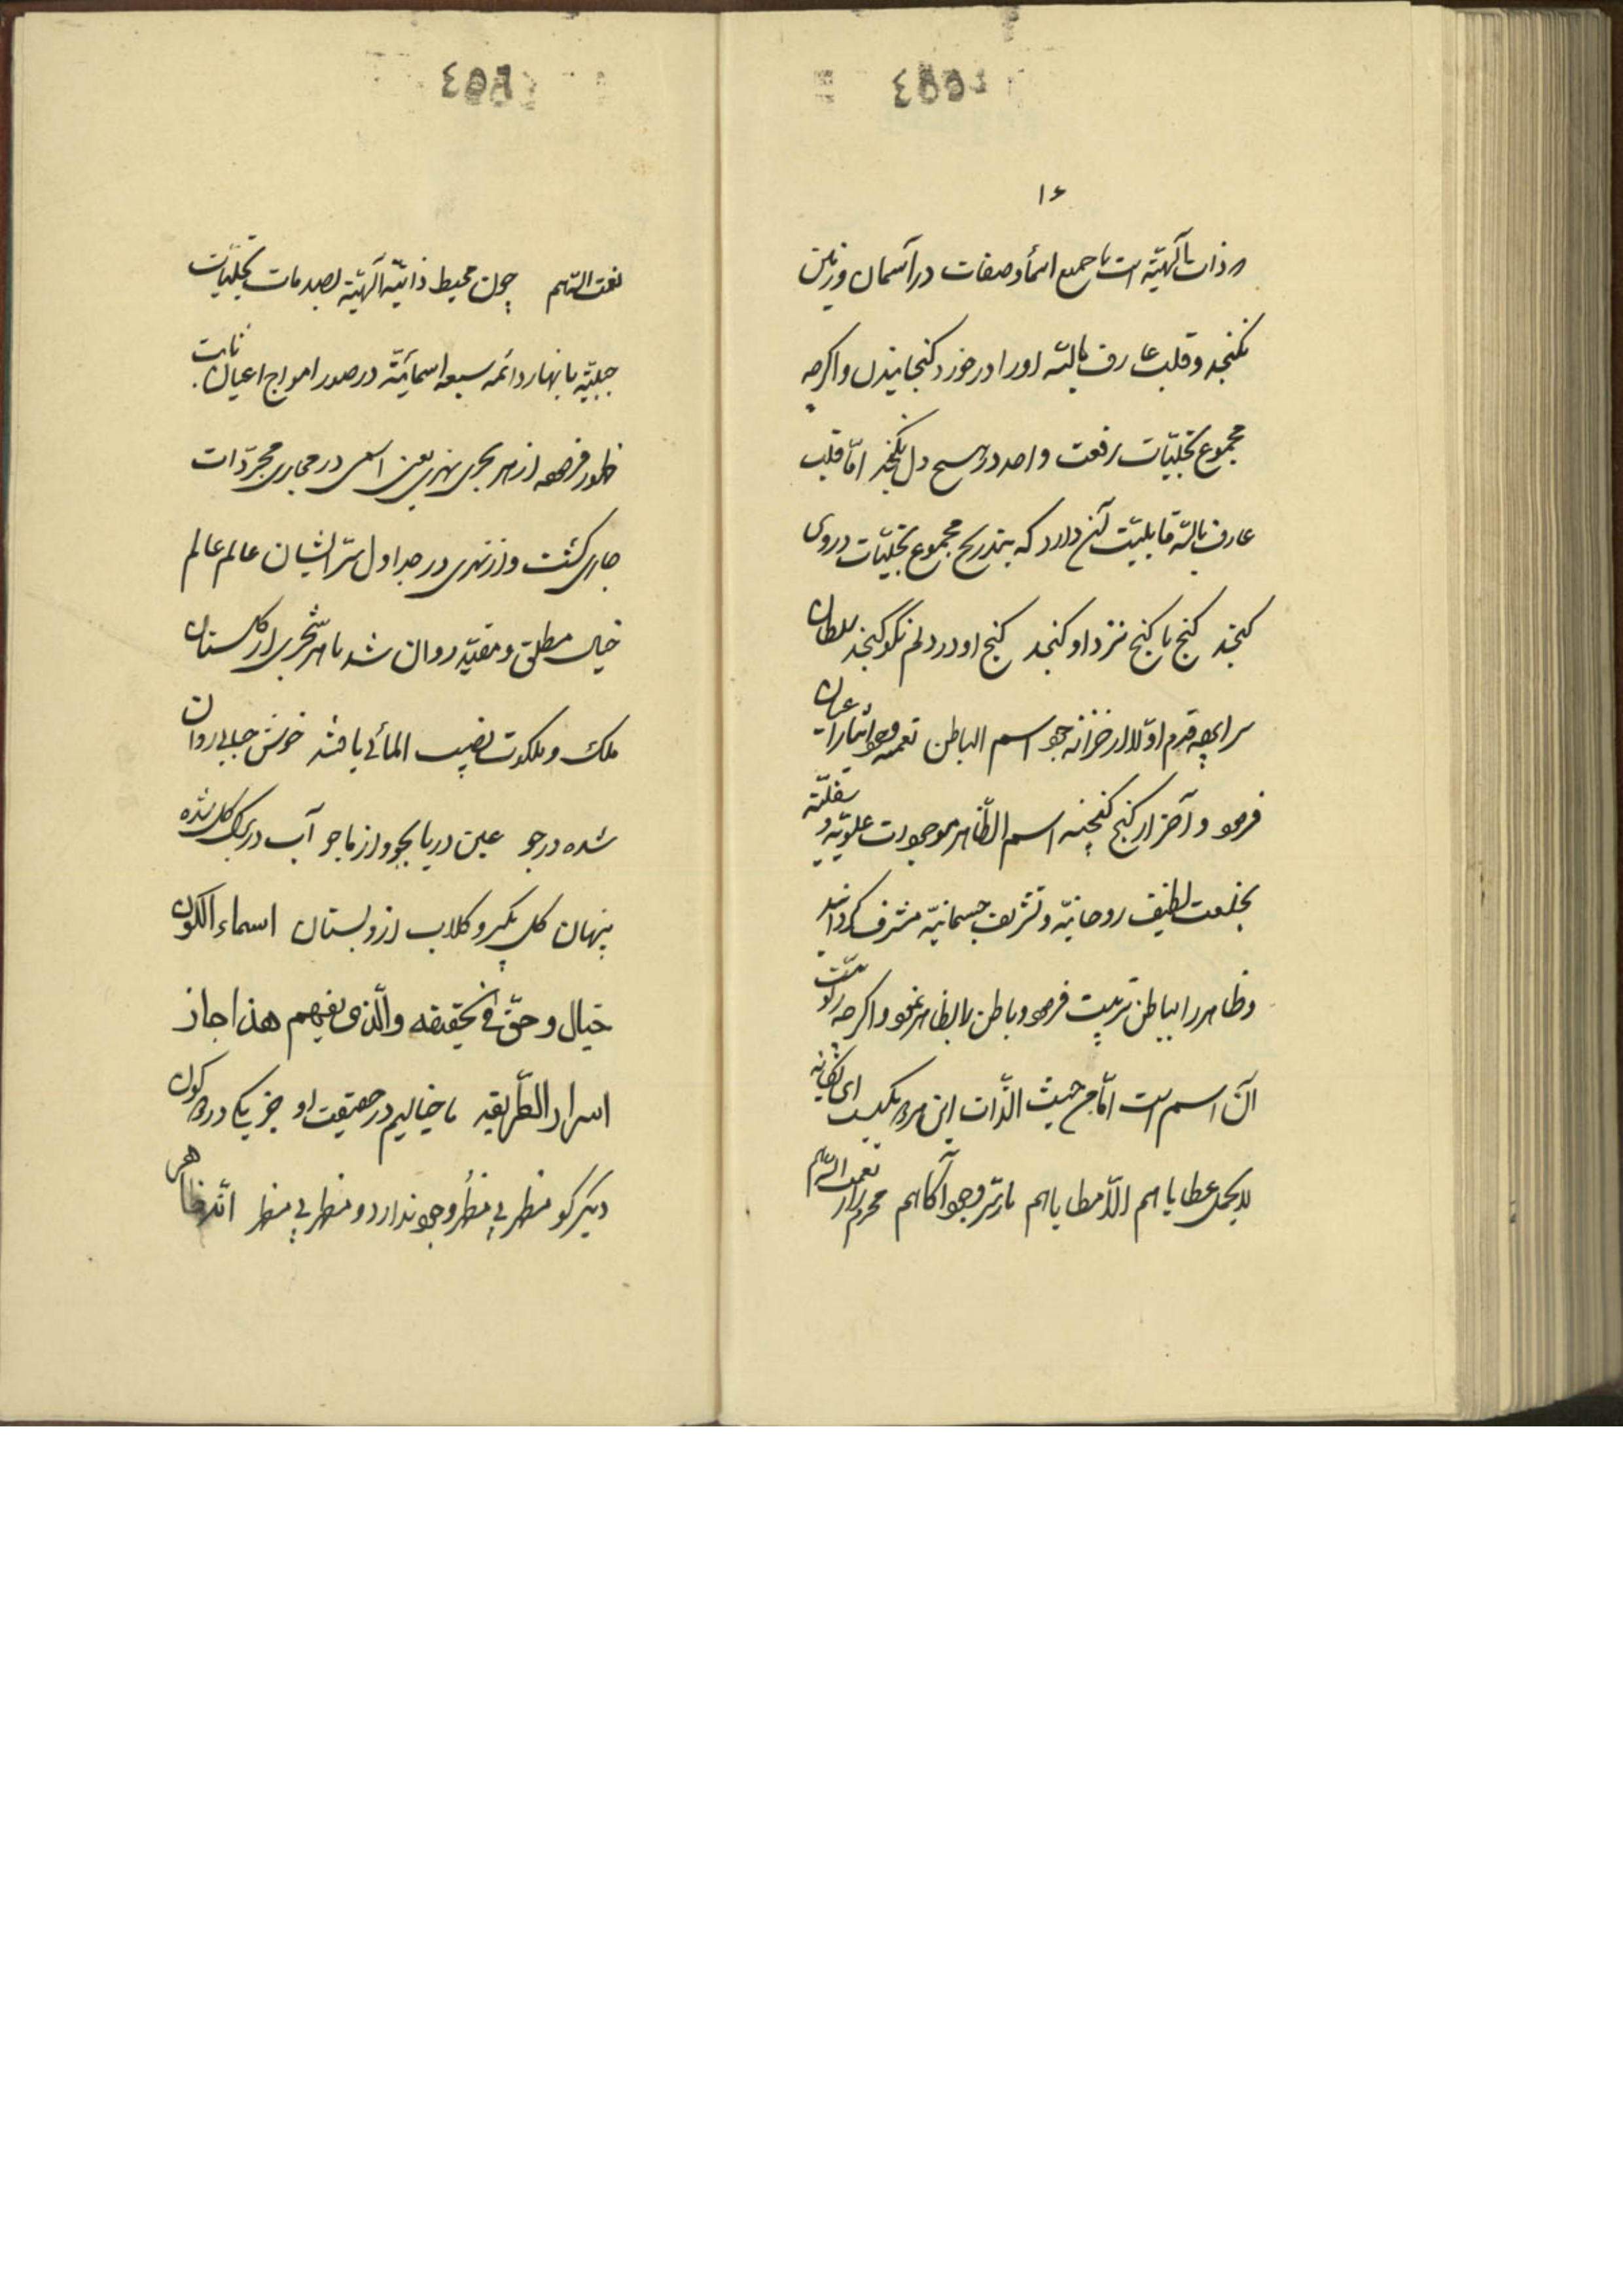 ١۶
ذات آلهیّه است با جمیع اسماء و صفات در آسمان و زمین
نکنجد و قلب عارف بالله او را در خورد کنجانیدن و اکرچه
مجموع تجلیّات رفعت واحد در هیچ دل نکنجد امّا قلب
عارف بالله قابلیّت آن دارد که بتدریج مجموع تجلیّات در وی
کنجد کنج با کنج نزد او کنجد کنج او در دلم نکو کنجد سلطان
سراپرده قدم اوّلا از خزانه جود اسم الباطن نعمت وجود
فرمود و آخر از کنج کنجینه اسم الظّاهر موجودات علویّه و سفلیّه
بخلعت لطیف روحانیّه و تشریف جسمانیّه مشرف کردانید
و ظاهر را بباطن تربیت فرمود و باطن را بظاهر نمود و اکرچه
آن اسم است امّا من حیث الذّات این هر دو یکیست
لا یحمل عطایاهم الّا مطایاهم ما ز سرّ وجود آکاهیم محرم راز نعمت اللّهیم
نعمت اللّهیم چون محیط ذاتیّه آلهیّه بصدمات تجلیات
حبیّه بانهار دائمه سبعه اسمائیّه در صور امواج اعیان ثابت
ظهور فرموده از هر بحری نهری یعنی اسمی در مجاری مجرّدات
جاری کشت و از نهری در جداول سرابستان عالم عالم
خیال مطلق و مقیّد روان شد تا هر شجری از کلستان
ملک و ملکوت نصیب المائی یافتند خوش حبابی روان
شده در جو عین دریا بجو و از ما جو آب در برک کل شده
پنهان کل بکیر و کلاب ازو بستان اسماء الکون
خیال و حقّ فی الحقیقه والّذی یفهم هذا حاز
اسرار الطّریقه ما خیالیم در حقیقت او جز یکی در دو کون
دیکر کو مظهر بی مظهر وجود ندارد و مظهر بی مظهر الله ظاهر